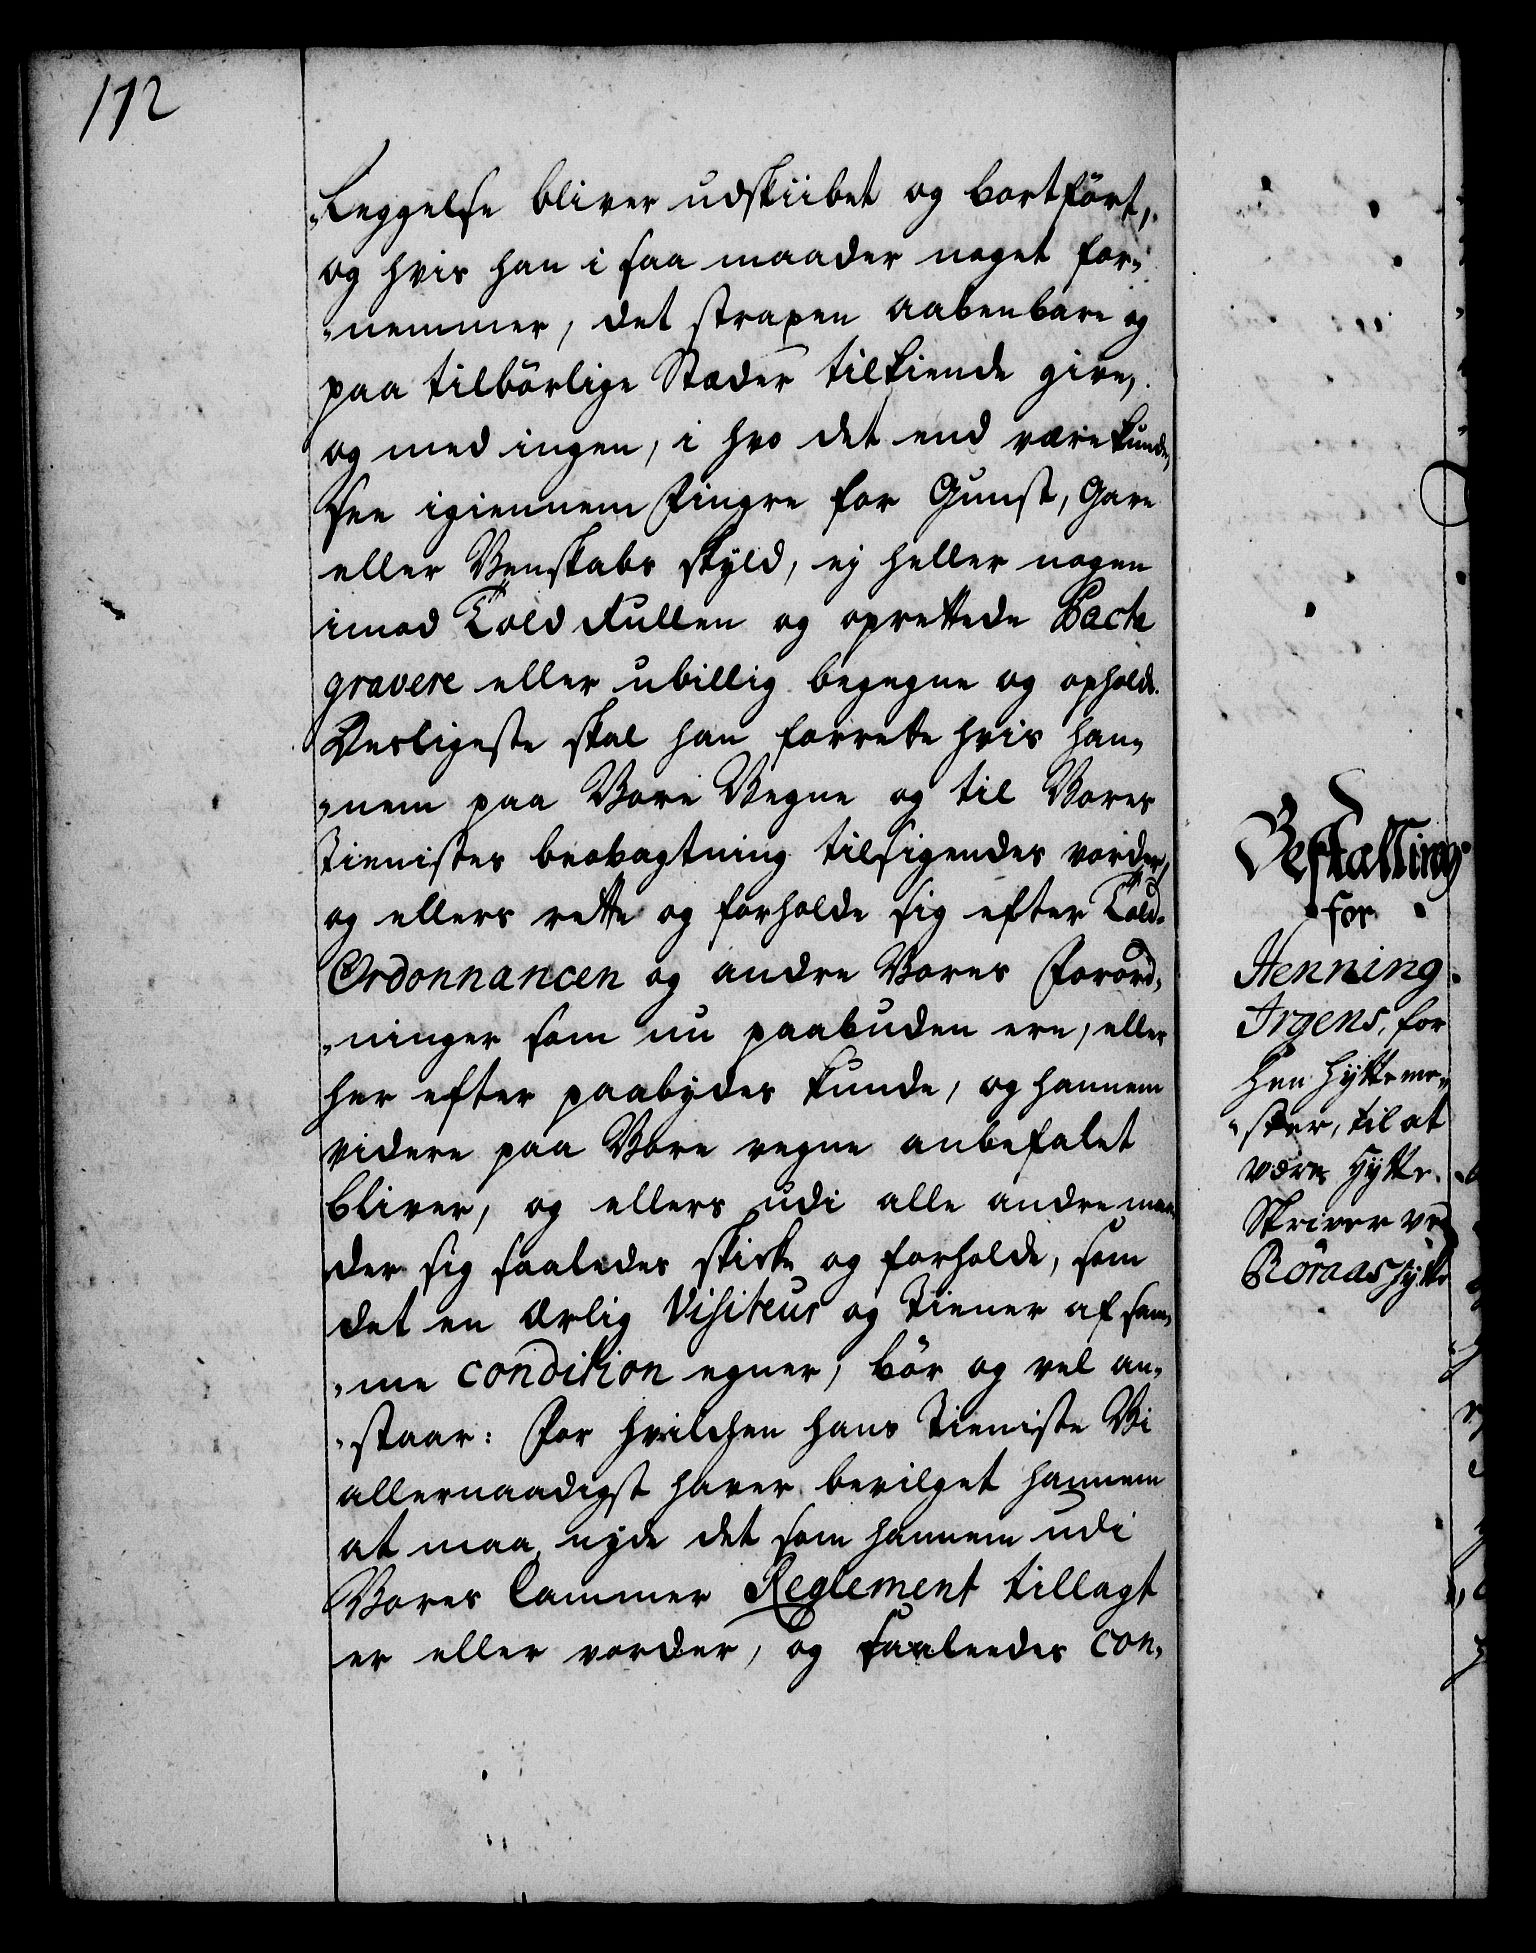 172
„leggelse bliver udskiibet og bortfört,
og hvis han i saa maader noget for„
„nemmer, det straxen aabenbare og
paa tilbörlige Stæder tilkiende give,
og med ingen, i hvo det end være kunde,
see igiennem Fingre for Gunst, Gave
eller Venskabs skyld, ej heller nogen
imod Told Rullen og oprettede Pacht
gravere eller ubillig begegne og opholde.
Desligeste skal han forrette hvis han„
„nem paa Vore Vegne og til Vores
Tienistes beobagtning tilsigendes vorder,
og ellers rette og forholde sig efter Told-
Ordonnancen og andre Vores Forord„
„ninger som nu paabuden ere, eller
her efter paabydes kunde, og hannem
videre paa Vore vegne anbefalet
bliver, og ellers udi alle andre maa„
der sig saaledes skicke og forholde, som
det en ærlig Visiteur og Tiener af sam„
„me condition egner, bör og vel an„
„staar: For hvilchen hans Tieniste Vi
allernaadigst haver bevilget hannem
at maa nyde det som hannem udi
Vores Cammer Reglement tillagt
er eller vorder, og saaleedes con„
Bestalling
for
Henning
Irgens, for
hen Hÿtteme„
„ster, til at
være Hytte-
Skriver ved
Röraas Hytte